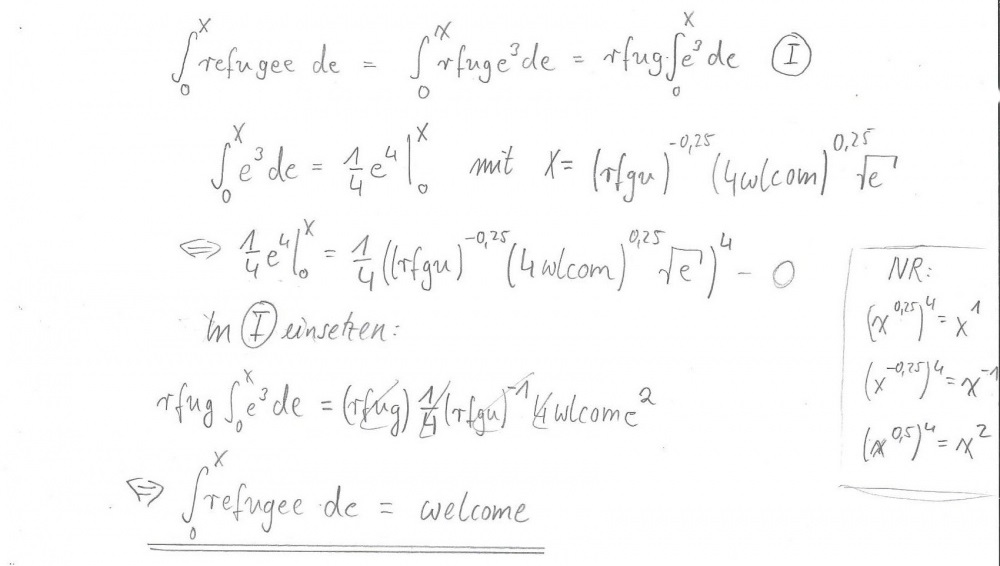 ∫₀ˣ refugee de = ∫₀ˣ rfuge³ de = rfug·∫₀ˣ e³ de (I)
∫₀ˣ e³ de = 1/4 e⁴ |₀ˣ mit X = (rfgu)^-0,25 (4wlcom)^0,25 √e
⇔ 1/4 e⁴ |₀ˣ = 1/4 ((rfgu)^-0,25 (4wlcom)^0,25 √e)⁴ - 0
In (I) einsetzen:
rfug ∫₀ˣ e³ de = (rfug) 1/4 (rfgu)⁻¹ 4wlcome²
⇔ ∫₀ˣ refugee · de = welcome
NR:
(x^0,25)⁴ = x¹
(x^-0,25)⁴ = x⁻¹
(x^0,5)⁴ = x²